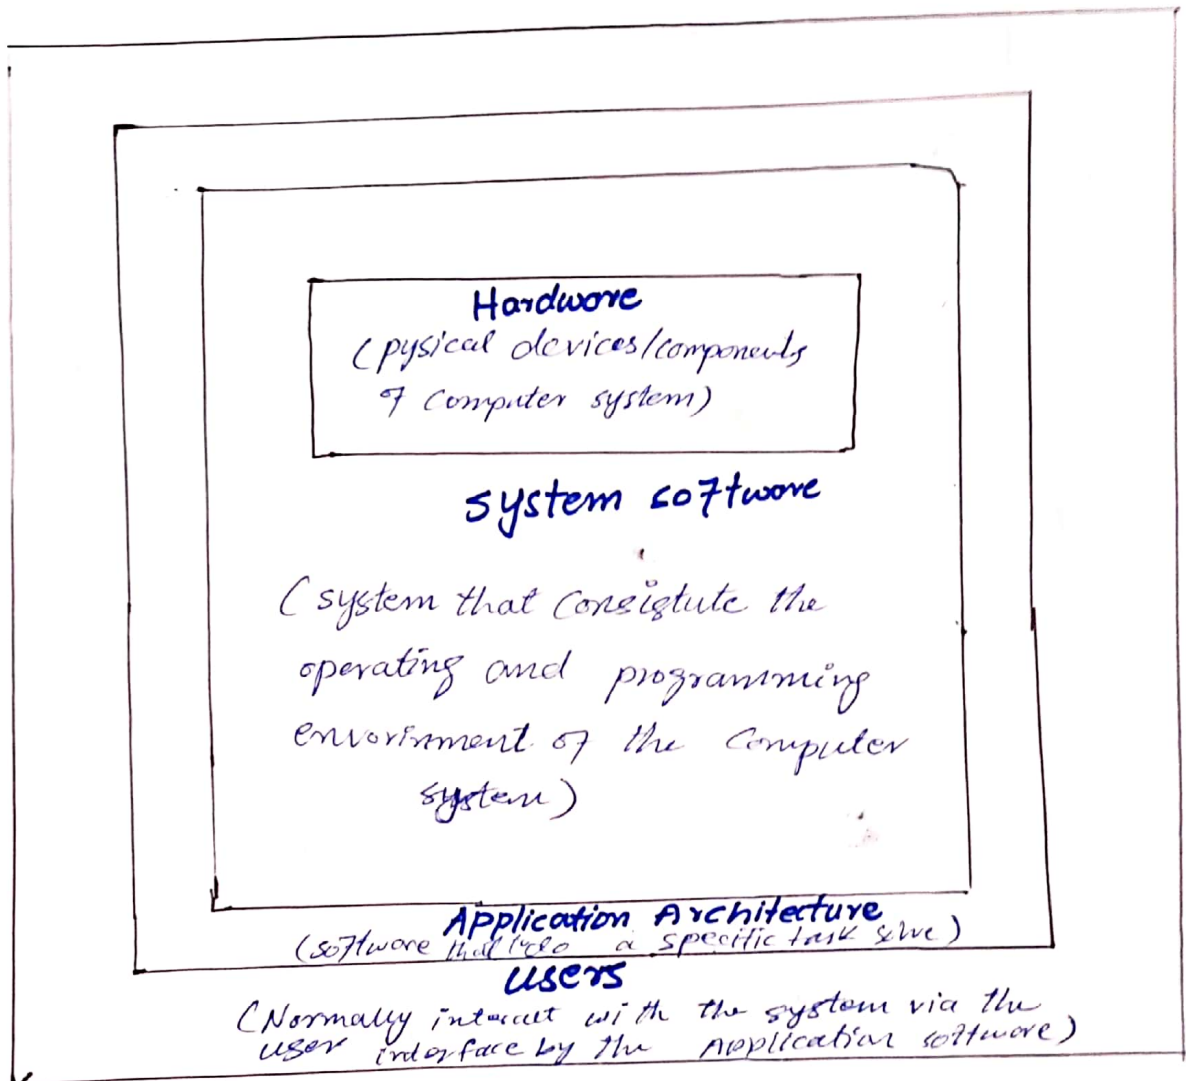 Hardwore
(pysical devices/components
of computer system)
system software
(system that consistute the
operating and programming
envorinment of the computer
system)
Application Architecture
(software that a specific task solve)
users
(Normally interact with the system via the
user interface by the Application software)